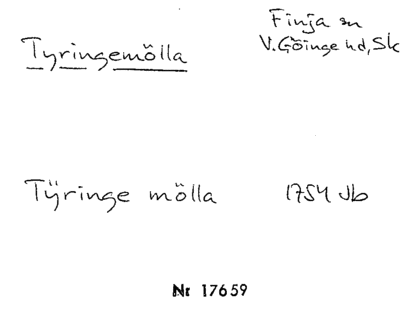 Finja sn
Tyringemölla V. Göinge hd, Sk
Tÿringe mölla 1754 Jb
Nr 17659